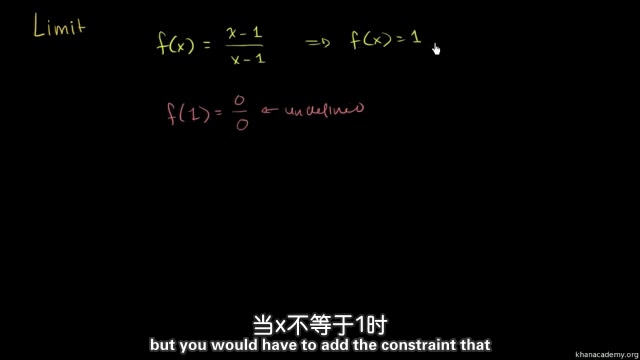 Limit
f(x) = x-1 / x-1 ⇒ f(x) = 1
f(1) = 0 / 0 ← undefined
当x不等于1时
but you would have to add the constraint that
khanacademy.org